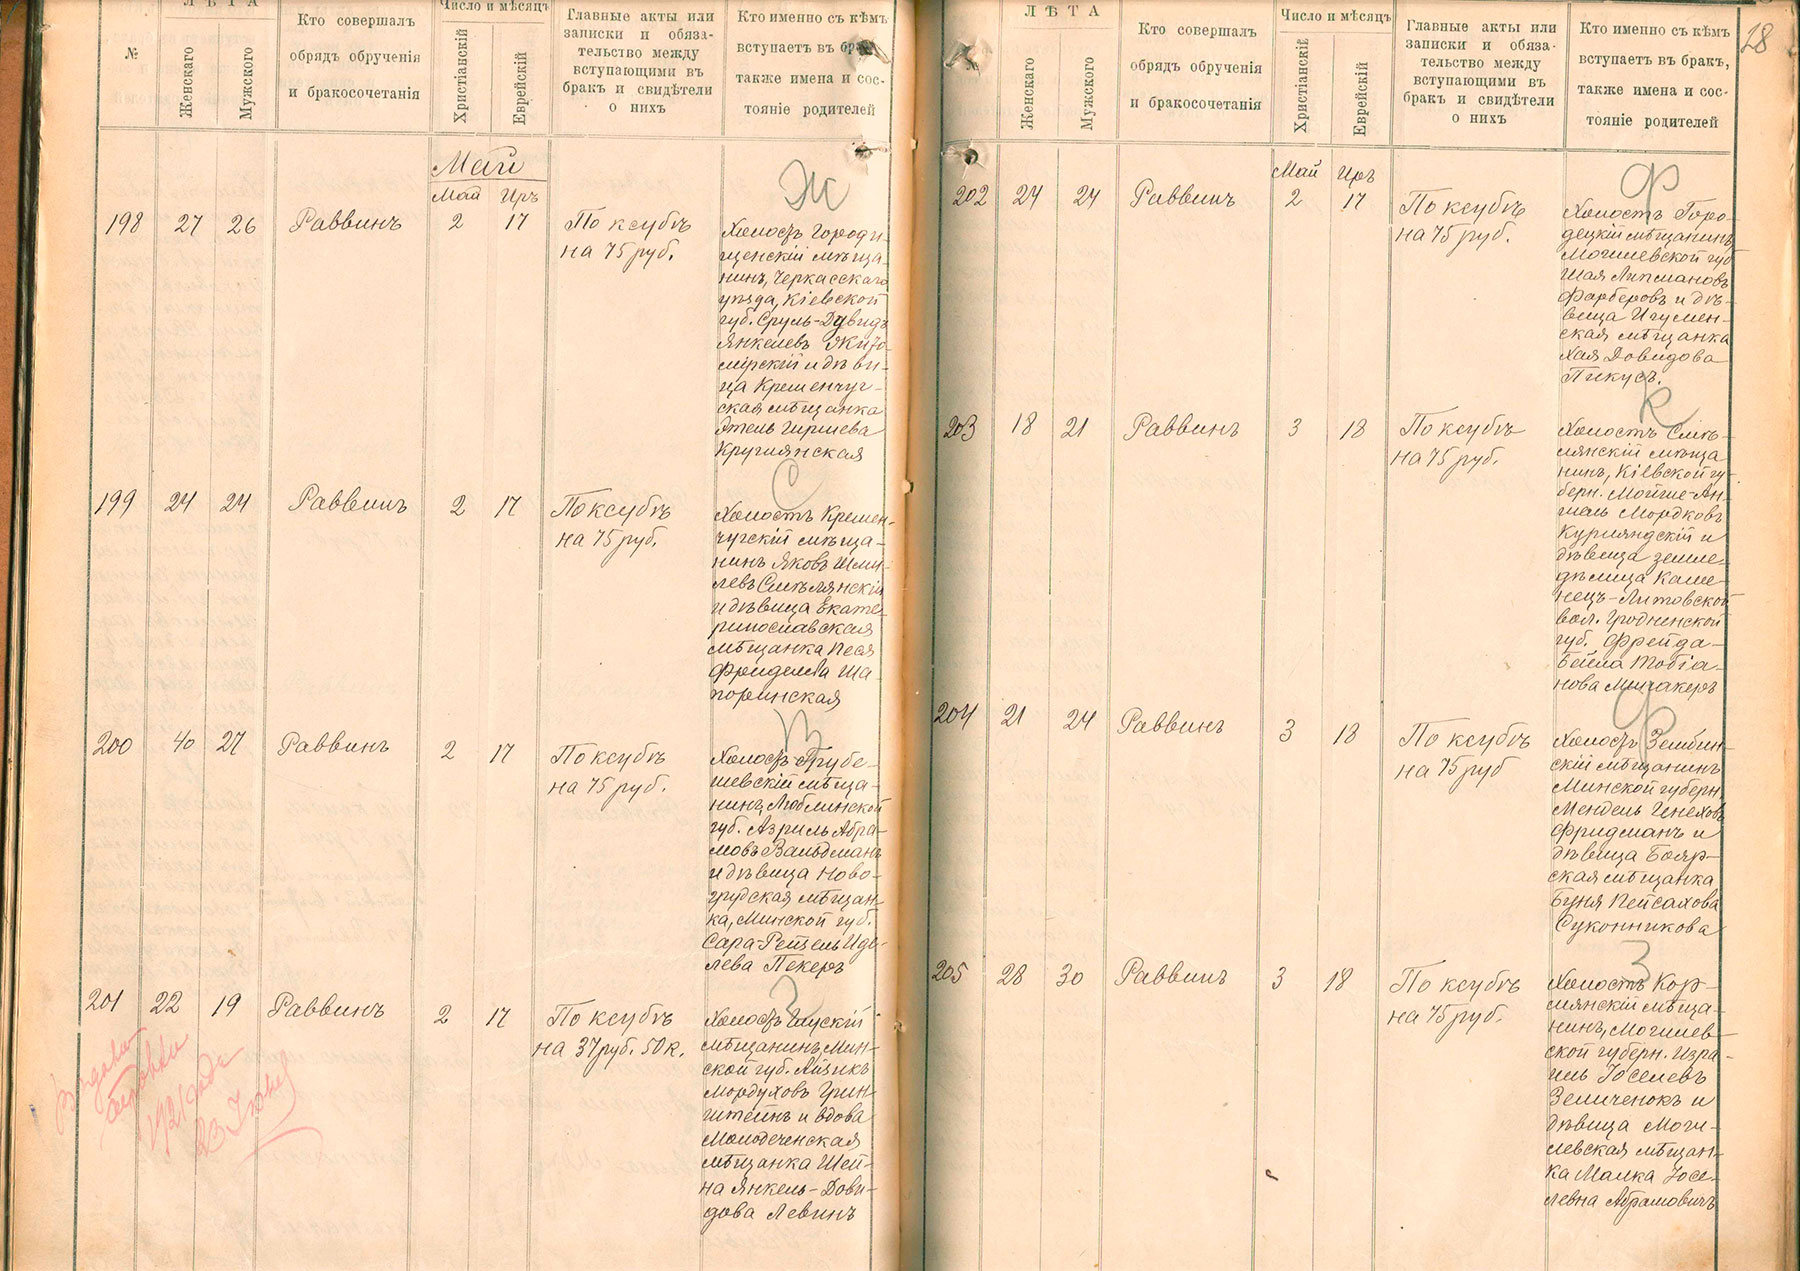 №
ЛѢТА
Женскаго
Мужского
Кто совершалъ
обрядъ обрученія
и бракосочетанія
Число и мѣсяцъ
Христіанскій
Еврейскій
Главные акты или
записки и обяза-
тельство между
вступающими въ
бракъ и свидѣтели
о нихъ
Кто именно съ кѣмъ
вступаетъ въ бракъ,
также имена и сос-
тояніе родителей
Май
Май Иръ
Ж
198 27 26 Раввинъ 2 17
По ксубѣ
на 75 руб.
Холостъ Городи-
щенскій мѣща-
нинъ, Черкасскаго
уѣзда, Кіевской
губ. Сруль-Дувидъ
Янкелевъ Жито-
мірскій и дѣви-
ца Кременчуг-
ская мѣщанка
Этель Гиршева
Круглянская
С
199 24 24 Раввинъ 2 17
По ксубѣ
на 75 руб.
Холостъ Кремен-
чугскій мѣща-
нинъ Яковъ Шму-
левъ Смѣлянскій
и дѣвица Екате-
ринославская
мѣщанка Песя
Фриделева Ша
поринская
В
200 40 27 Раввинъ 2 17
По ксубѣ
на 75 руб.
Холостъ Грубе-
шевскій мѣща-
нинъ, Люблинской
губ. Азриль Абра-
мовъ Вальдманъ
и дѣвица Ново-
грудская мѣщан-
ка, Минской губ.
Сара-Рейзель Иде-
лева Пекеръ
Г
201 22 19 Раввинъ 2 17
По ксубѣ
на 37 руб. 50 к.
Холостъ Глускій
мѣщанинъ, Мин-
ской губ. Айзикъ
Мордуховъ Грин-
штейнъ и вдова
Молодеченская
мѣщанка Шей-
на Янкель-Дови-
дова Левинъ
1921 года
23 Юня
28
ЛѢТА
Женскаго
Мужского
Кто совершалъ
обрядъ обрученія
и бракосочетанія
Число и мѣсяцъ
Христіанскій
Еврейскій
Главные акты или
записки и обяза-
тельство между
вступающими въ
бракъ и свидѣтели
о нихъ
Кто именно съ кѣмъ
вступаетъ въ бракъ,
также имена и сос-
тояніе родителей
Май Иръ
Ф
202 24 24 Раввинъ 2 17
По ксубѣ
на 75 руб.
Холостъ Горо-
децкій мѣщанинъ
Могилевской губ
Шая Липмановъ
Фарберовъ и дѣ-
вица Игумен-
ская мѣщанка
Хая Довидова
Пикусъ.
К
203 18 21 Раввинъ 3 18
По ксубѣ
на 75 руб.
Холостъ Смѣ-
лянскій мѣща
нинъ, Кіевской гу-
берн. Мойше-Ан-
шель Мордковъ
Курляндскій и
дѣвица земле-
дѣлица Каме-
нецъ-Литовской
вол. Гродненской
губ. Фрейда-
Бейла Тобіа-
нова
Ф
204 21 24 Раввинъ 3 18
По ксубѣ
на 75 руб
Холостъ Зембин-
скій мѣщанинъ
Минской губерн.
Мендель Генехов
Фридманъ и
дѣвица Бояр-
ская мѣщанка
Буня Пейсахова
Суконникова
З
205 28 30 Раввинъ 3 18
По ксубѣ
на 75 руб.
Холостъ Кор-
мянскій мѣща-
нинъ, Могилев-
ской губерн. Изра-
иль Іоселевъ
Зеличенокъ и
дѣвица Моги-
левская мѣщан-
ка Малка Іосе-
левна Абрамовичъ